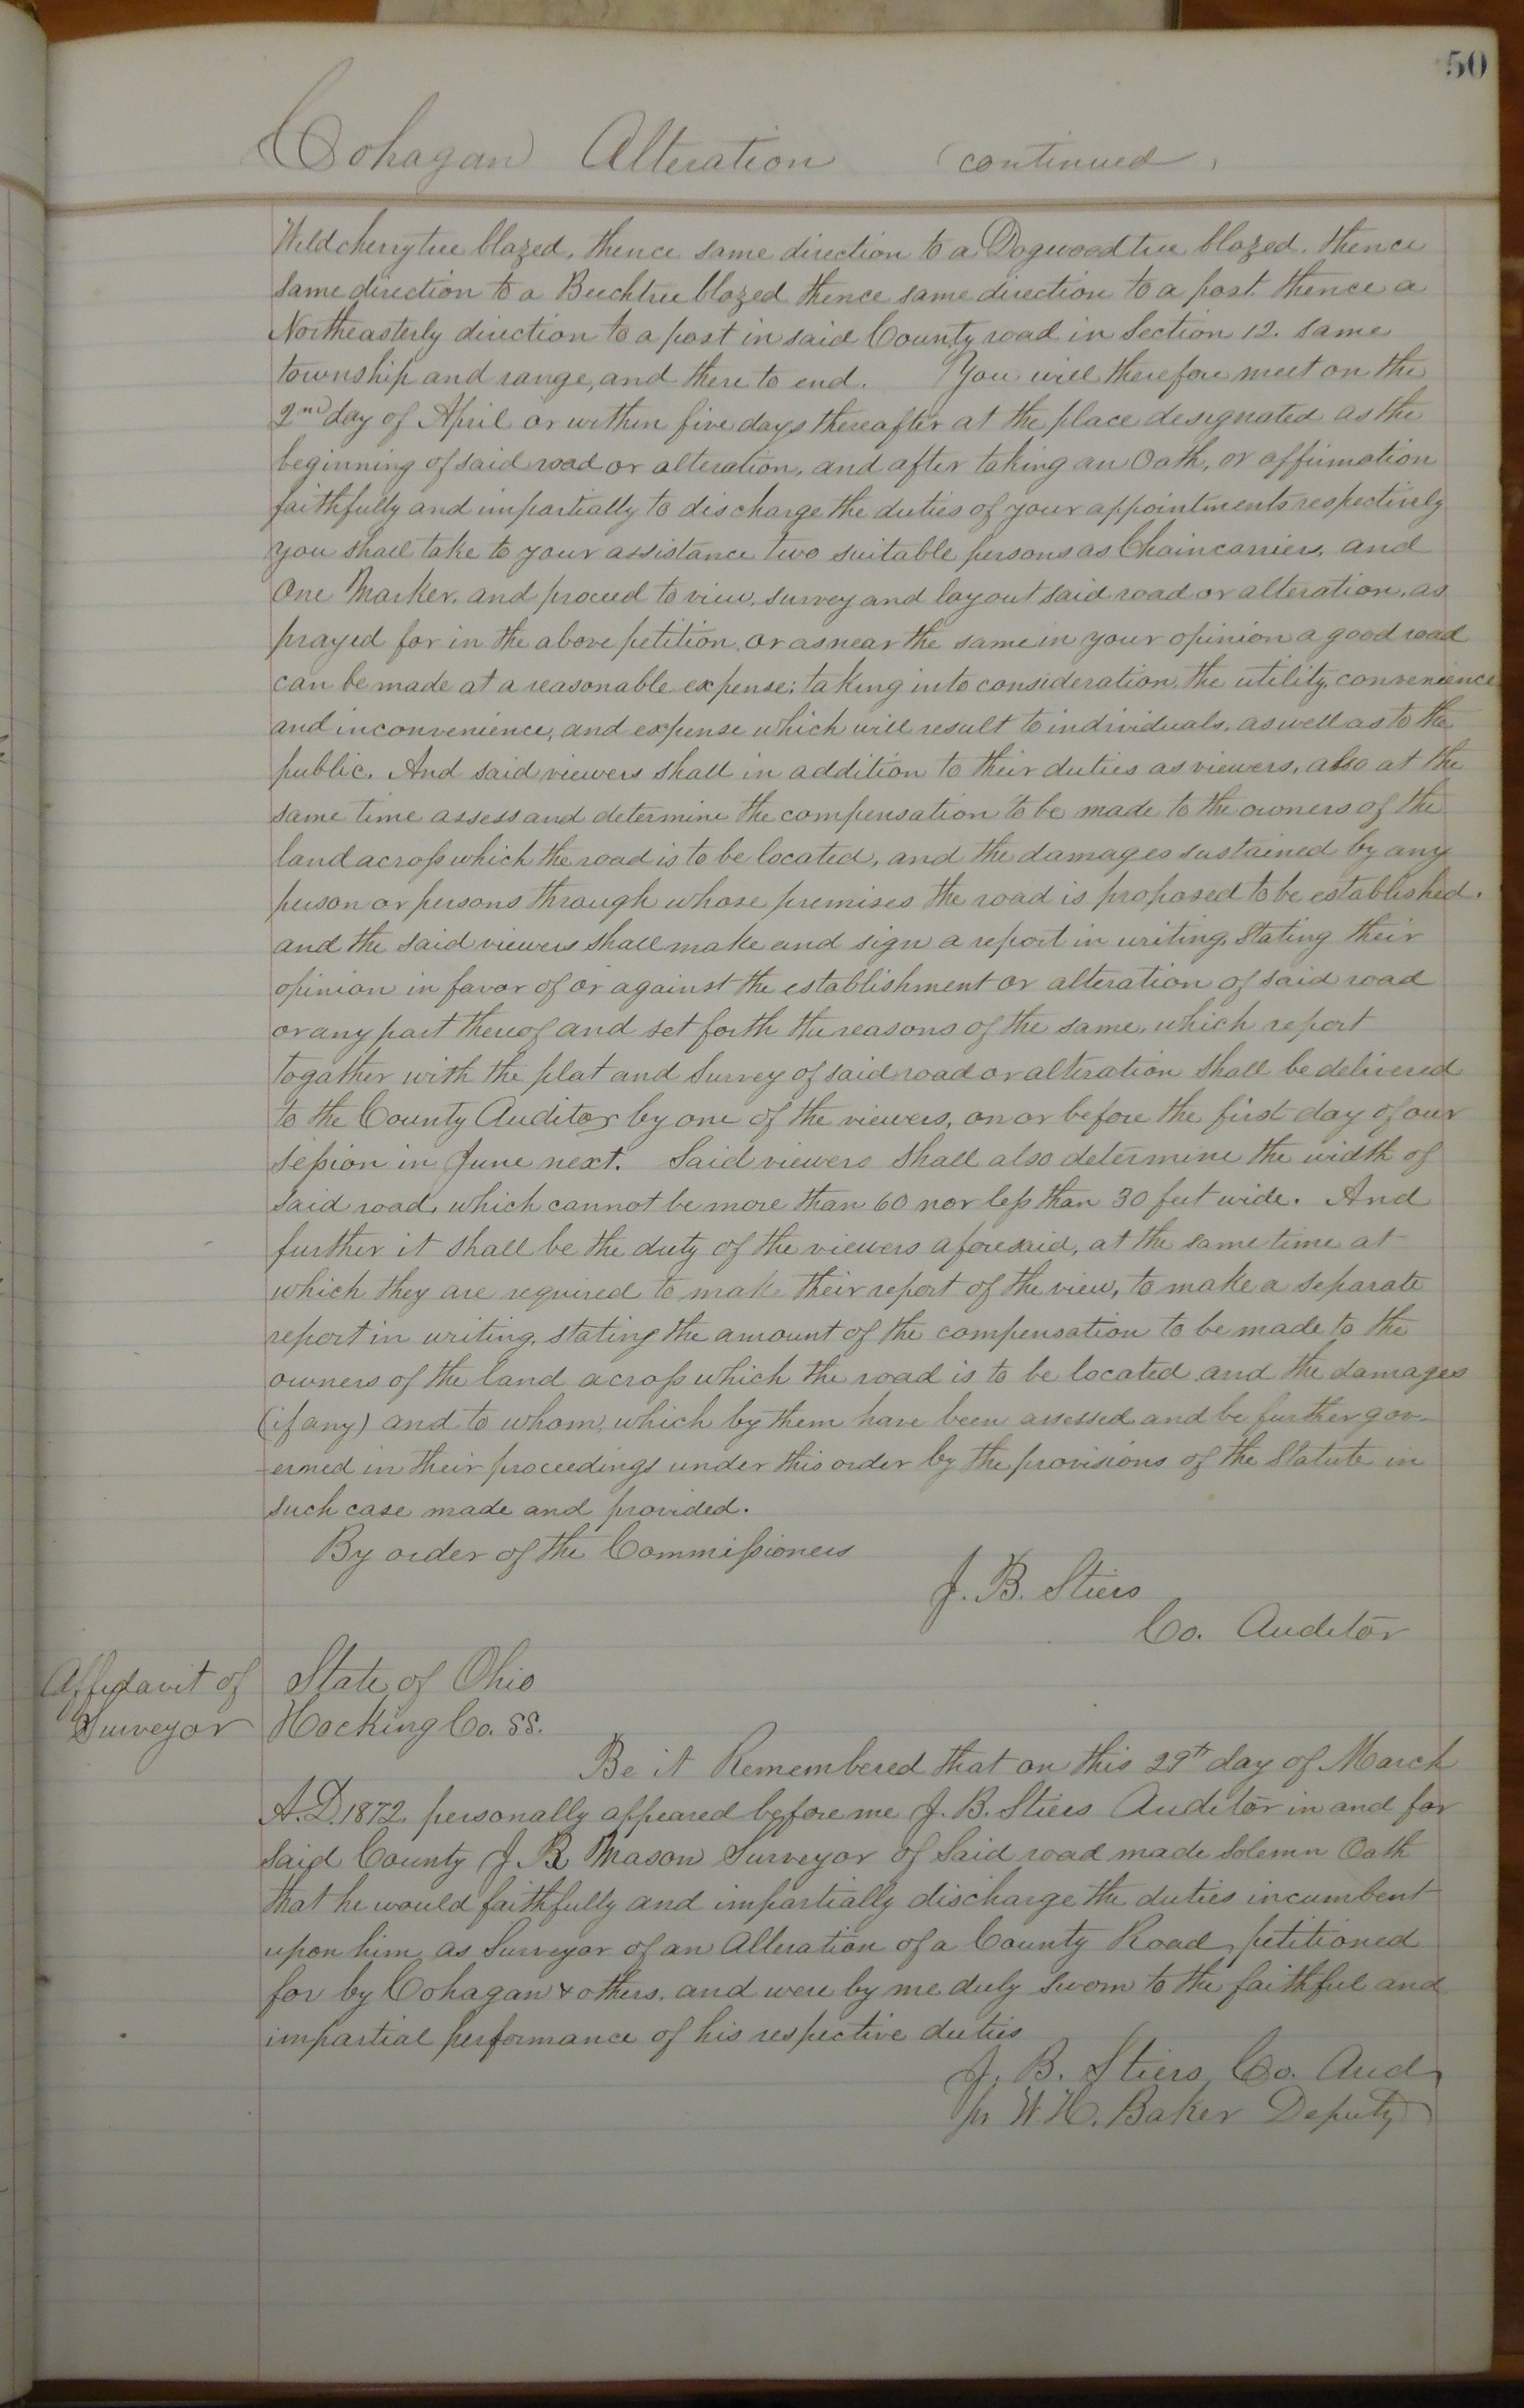 50
Cohagan Alteration (continued,
Wildcherrytree blazed, thence same direction to a Dogwood tree blazed, thence
same direction to a Beechtree blazed thence same direction to a post thence a
Northeasterly direction to a post in said County road in Section 12. same
township and range, and there to end. You will therefore meet on the
2nd day of April or within five days thereafter at the place designated as the
beginning of said road or alteration, and after taking an Oath, or affirmation
faithfully and impartially to discharge the duties of your appointments respectively
you shall take to your assistance two suitable persons as Chaincarriers, and
One Marker, and proceed to view, survey and layout said road or alteration, as
prayed for in the above petition, or as near the same in your opinion a good road
can be made at a reasonable expense; taking into consideration, the utility, convenience
and inconvenience, and expense which will result to individuals, as well as to the
public. And said viewers shall in addition to their duties as viewers, also at the
same time assess and determine the compensation to be made to the owners of the
land across which the road is to be located, and the damages sustained by any
person or persons through whose premises the road is proposed to be established.
and the said viewers shall make and sign a report in writing, stating their
opinion in favor of or against the establishment or alteration of said road
or any part thereof and set forth the reasons of the same, which report
togather with the plat and Survey of said road or alteration shall be delivered
to the County Auditor by one of the viewers, on or before the first day of our
session in June next. Said viewers shall also determine the width of
said road, which cannot be more than 60 nor less than 30 feet wide. And
further it shall be the duty of the viewers aforesaid, at the same time at
which they are required to make their report of the view, to make a separate
report in writing, stating the amount of the compensation to be made to the
owners of the land across which the road is to be located and the damages
(if any) and to whom, which by them have been assessed and be further gov-
-erned in their proceedings under this order by the provisions of the Statute in
such case made and provided.
By order of the Commissioners
J. B. Stiers
Co. Auditor
Affidavit of
Surveyor
State of Ohio
Hocking Co. SS.
Be it Remembered that on this 29th day of March
A.D. 1872, personally appeared before me J. B. Stiers Auditor in and for
said County J. R. Mason Surveyor of Said road made Solemn Oath
that he would faithfully and impartially discharge the duties incumbent
upon him, as Surveyor of an Alteration of a County Road, petitioned
for by Cohagan & others, and were by me duly sworn to the faithful and
impartial performance of his respective duties
J. B. Stiers, Co. Aud
pr W. H. Baker Deputy